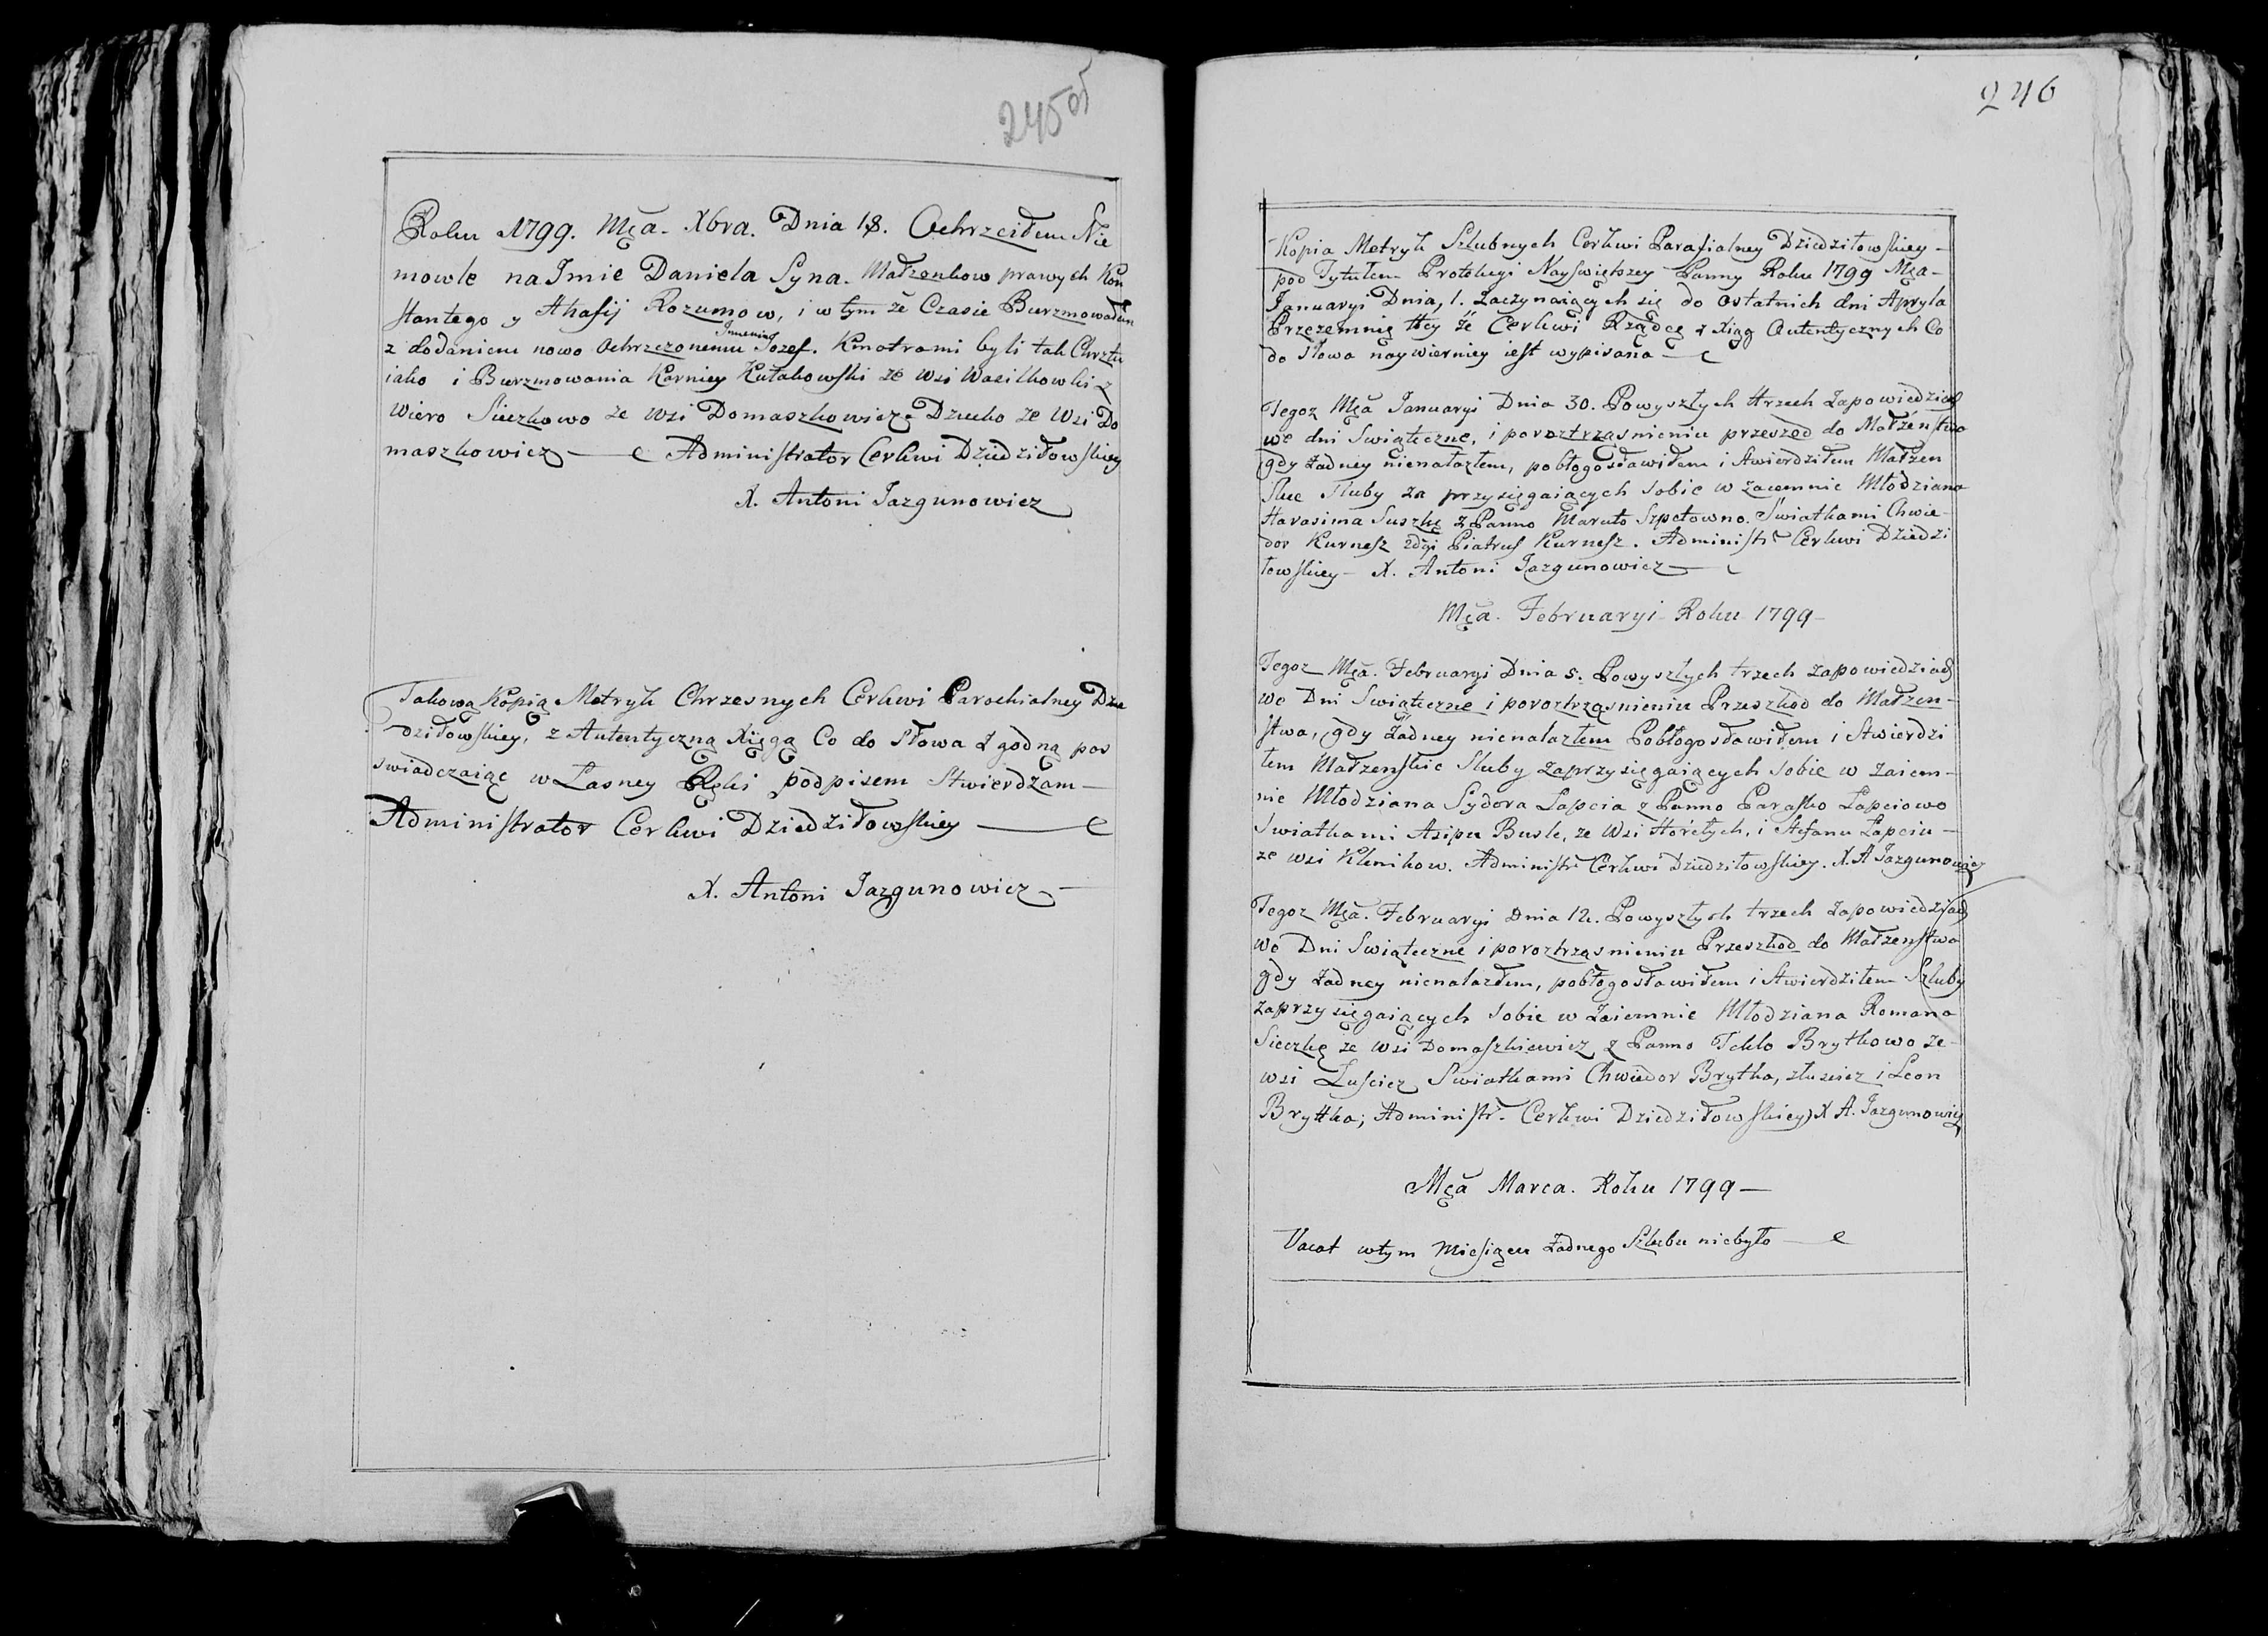 245 об
Roku 1799. Mca. Xbra. Dnia 18. Ochrzciłem Nie
mowle na Jmie Daniela Syna. Małzenkow prawych Kon
stantego y Ahafij Rozumow, i w tym że Czasie Burzmowałem
Jmienia
z dodaniem nowo Ochrzczonemu Jozef. Kmotrami byli tak Chrztu
iako i Burzmowania Karniey Kułakowski ze wsi Wasilkowki z
Wiero Sieczkowo ze wsi Domaszkowicz Dziecko ze Wsi Do
maszkowicz Administrator Cerkwi Dziedziłowskiey
X. Antoni Jazgunowicz
Takową Kopią Metryk Chrzesnych Cerkwi Parochialney Dzie
dziłowskiey, z Autentyczną Xięgą Co do Słowa Zgodną pos
swiadczaiąc w Łasney Ręki podpisem Stwierdzam
Administrator Cerkwi Dziedziłowskiey
X. Antoni Jazgunowicz
246
Kopia Metryk Szlubnych Cerkwi Parafialney Dziedziłowskiey
pod Tytułem Protekcyi Nayswiętszey Panny Roku 1799 Mca
Januaryi Dnia, 1. Zaczynaiących się do Ostatnich dni Apryla
Przezemnie tey że Cerkwi Rządcę z Xiąg Autentycznych Co
do słowa naywierniey iest wypisana
Tegoz Mca Januaryi Dnia 30. Powyszłych trzech Zapowiedziach
we dni Swiąteczne, i poroztrząsnieniu przeszod do Małżenstwa
gdy Żadney nienalazłem, pobłogosławiłem i Stwierdziłem Małzen
skie Sluby za przysięgaiących sobie w zaiemnie Młodziana
Harasima Suszkę z Panno Maruto Szpetowno. Swiatkami Chwie
dor Kurnesz 2dgi Piatrus Kurnesz. Administr Cerkwi Dziedzi
łowskiey X. Antoni Jazgunowicz
Mca. Februaryi Roku 1799
Tegoz Mca. Februaryi Dnia 5. Powyszłych trzech zapowiedziach
we Dni Swiąteczne i poroztrząsnieniu Przeszkod do Małzen-
stwa, gdy Żadney nienalazłem Pobłogosławiłem i Stwierdzi
łem Małzenskie Sluby zaprzysięgaiących sobie w zaiem-
nie Młodziana Sydora Łapcia z Panno Parasko Łapciowo
Swiatkami Asipu Busle, ze Wsi Horełych, i Stefanu Łapciu
ze wsi Klenikow. Administr Cerkwi Dziedziłowskiey. X. A Jazgunowicz
Tegoz Mca. Februaryi Dnia 12. Powyszłych trzech zapowiedziach
we Dni Swiąteczne i poroztrząsnieniu Przeszkod do Małzenstwa
gdy Żadney nienalazłem, pobłogosławiłem i Stwierdziłem Szluby
zaprzysięgaiących sobie w Zaiemnie Młodziana Romana
Sieczkę ze wsi Domaszkiewicz z Panno Teklo Brytkowo ze
wsi Łuscicz Swiatkami Chwiedor Brytka, złuscicz i Leon
Brytka; Administr. Cerkwi Dziedziłowskiey X A. Jazgunowicz
Mca Marca. Roku 1799
Vacat wtym Miesiącu Żadnego Szlubu niebyło